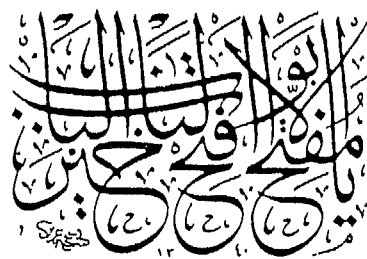 يا مفتح الابواب افتح لنا خير الباب
١٢٤٠